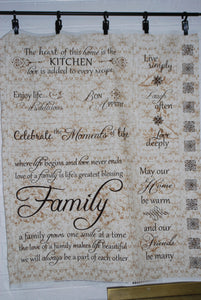 The heart of this home is the
KITCHEN
love is added to every recipe
Enjoy life
BON
Celebrate the Moments of life
where life begins and love never ends
love of a family is life's greatest blessing
Family
a family grows one smile at a time
the love of a family makes life beautiful
we will always be a part of each other
Live
simply
Laugh
often
Love
deeply
May our
Home
be warm
and our
Friends
be many